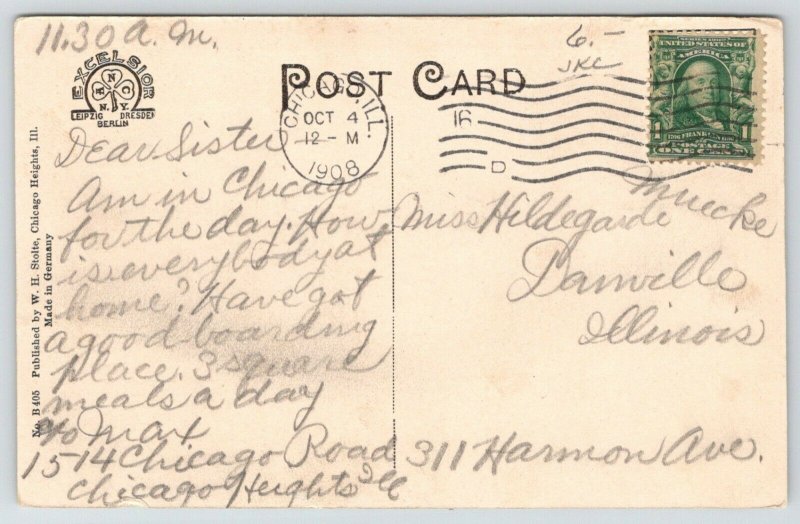 11.30 a. m.
6.-
JKC
EXCELSIOR
ANC
N.Y.
LEIPZIG DRESDEN
BERLIN
POST CARD
CHICAGO, ILL.
OCT 4
12-M
1908
16
D
SERIES 1902
UNITED STATES OF
AMERICA
1 FRANKLIN 1
POSTAGE
ONE CENT
No. B 405 Published by W. H. Stolte, Chicago Heights, Ill.
Made in Germany
Dear Sister
Am in Chicago
for the day. How
is everybody at
home? Have got
a good boarding
place. 3 square
meals a day
c/o Max
1514 Chicago Road
Chicago Heights Ill
Miss Hildegarde Muecke
Danville
Illinois
311 Harmon Ave.